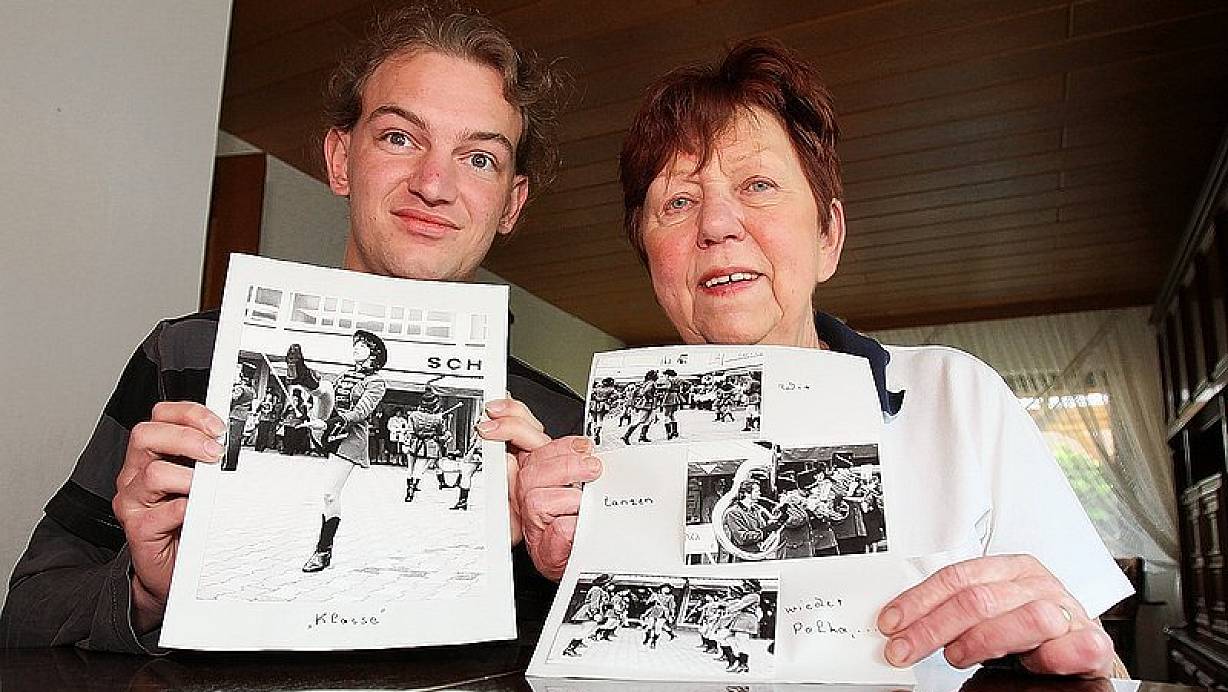 SCH
„Klasse“
tanzen
wieder
Polka,...